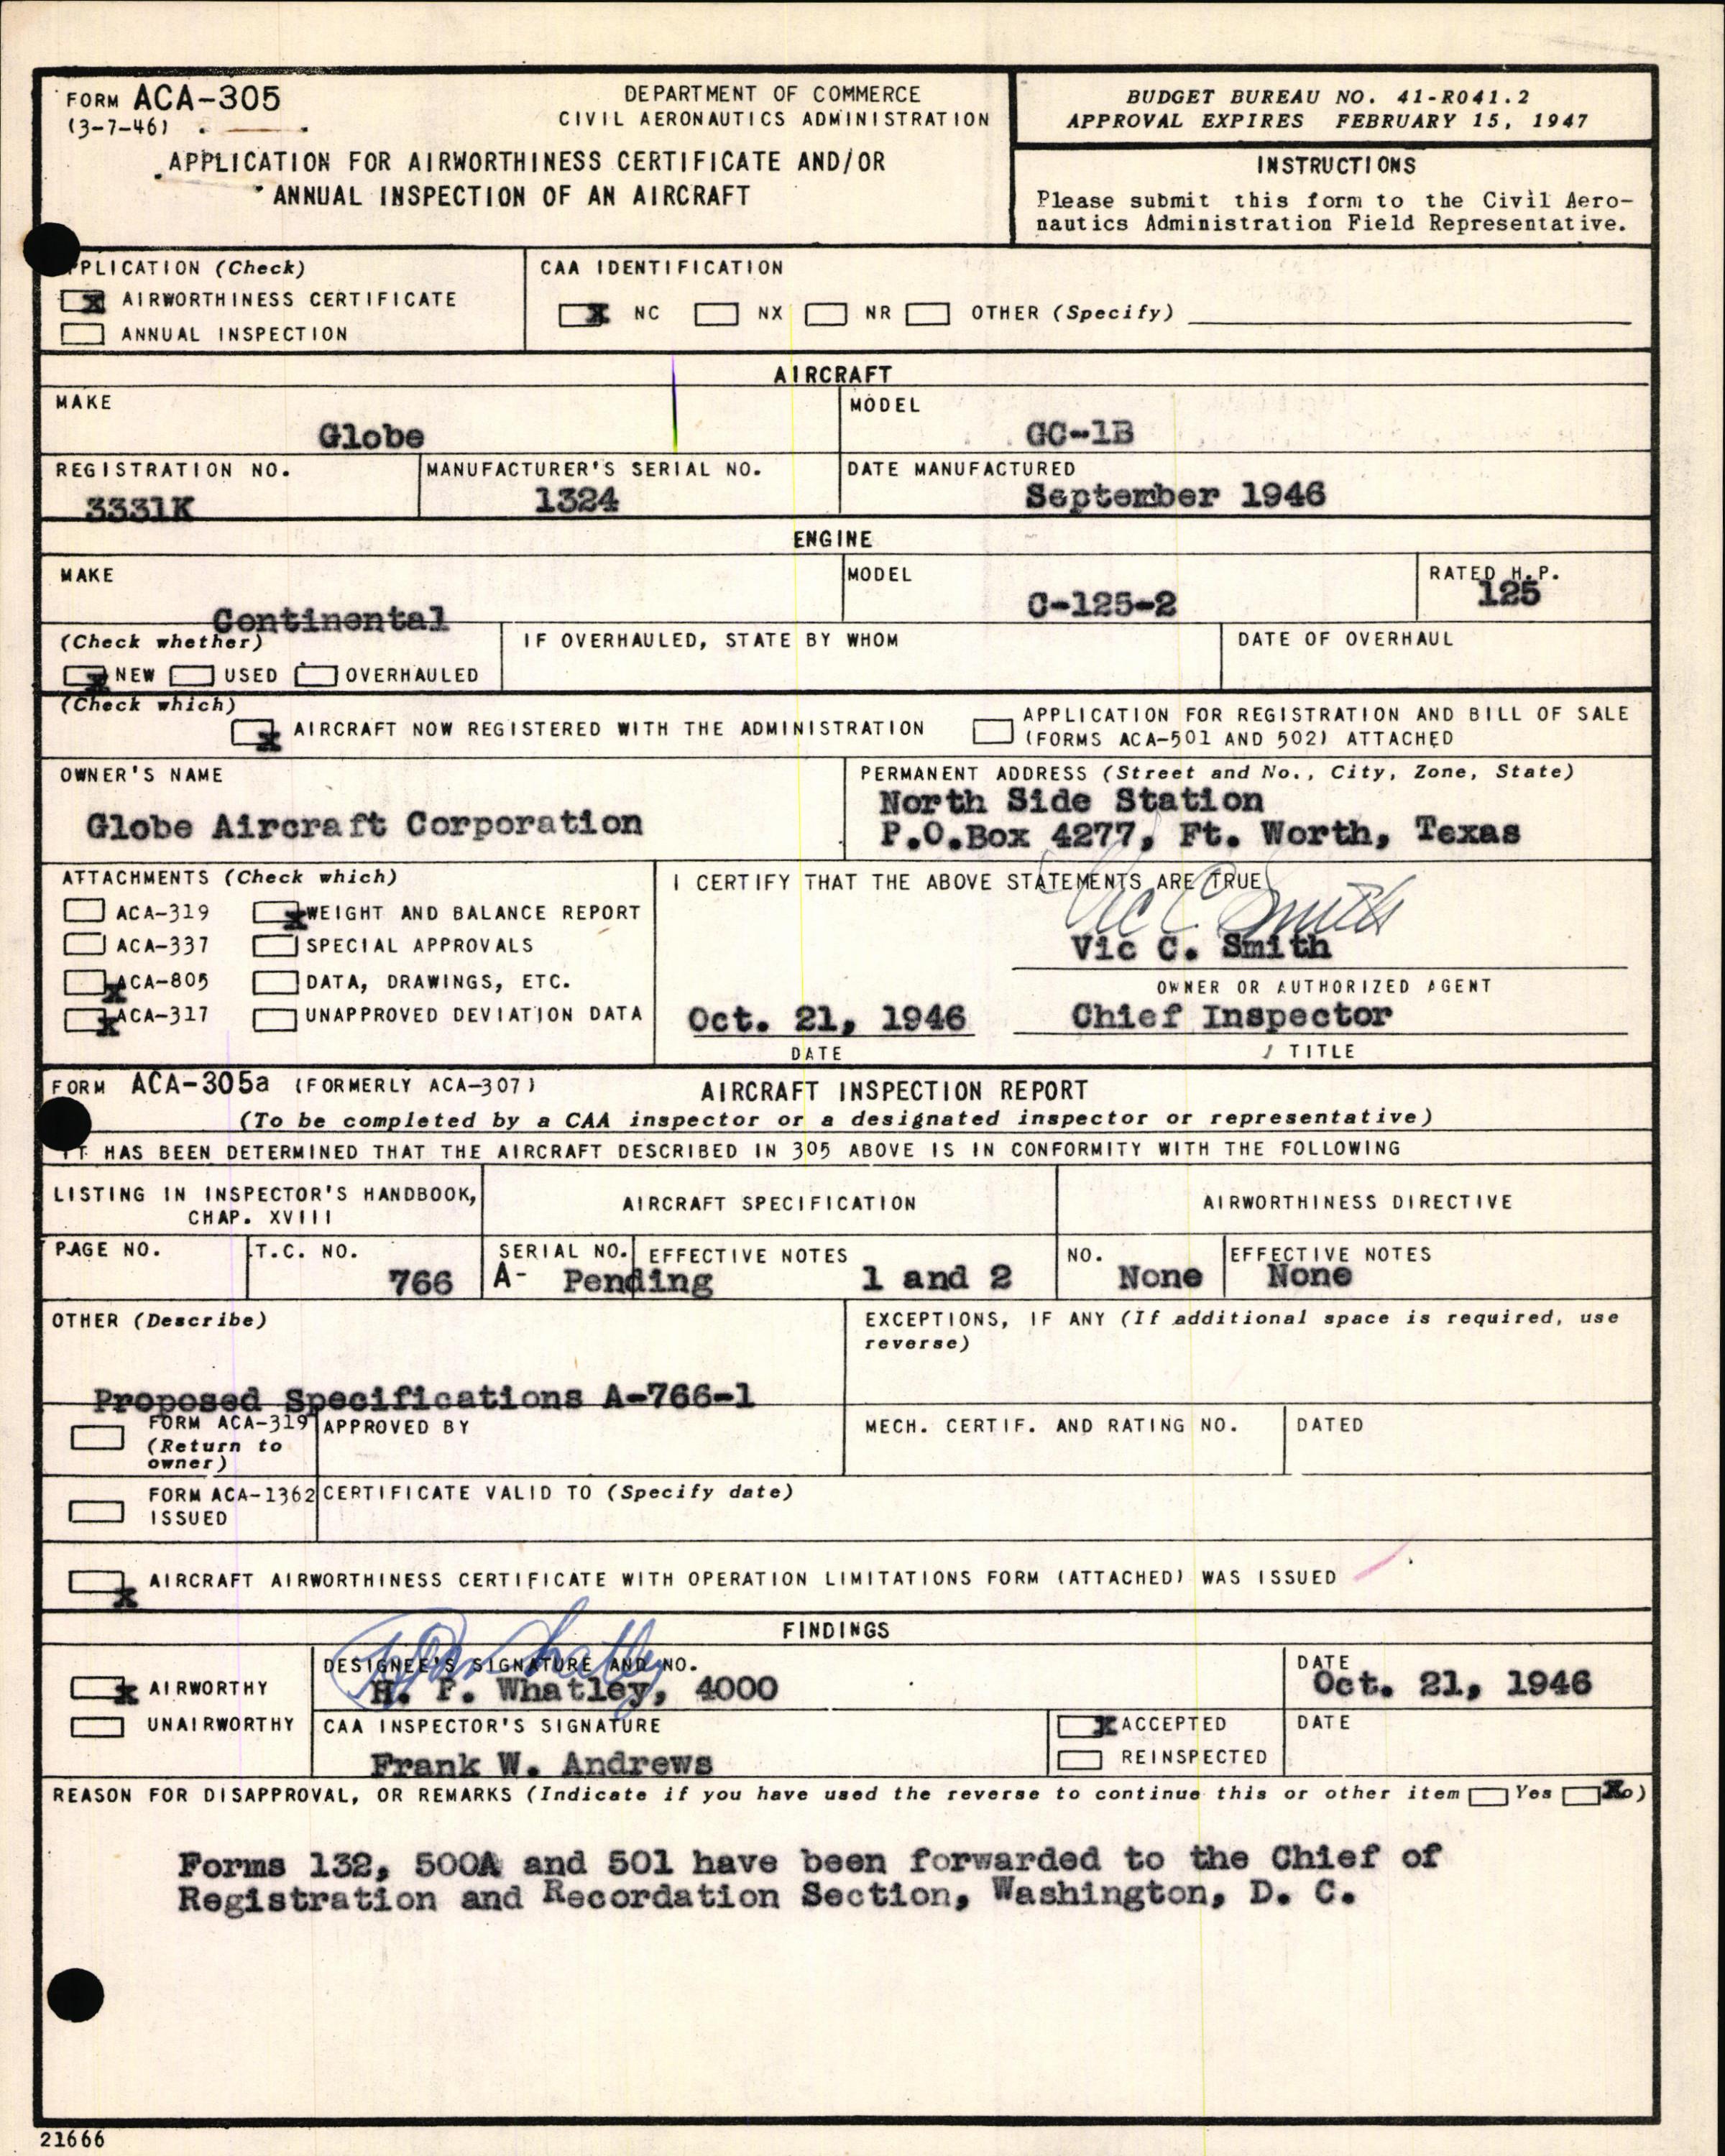 FORM ACA-305
(3-7-46)
DEPARTMENT OF COMMERCE
CIVIL AERONAUTICS ADMINISTRATION
APPLICATION FOR AIRWORTHINESS CERTIFICATE AND/OR
ANNUAL INSPECTION OF AN AIRCRAFT
BUDGET BUREAU NO. 41-R041.2
APPROVAL EXPIRES FEBRUARY 15, 1947
INSTRUCTIONS
Please submit this form to the Civil Aero-
nautics Administration Field Representative.
PPLICATION (Check)
X AIRWORTHINESS CERTIFICATE
ANNUAL INSPECTION
CAA IDENTIFICATION
X NC NX NR OTHER (Specify)
AIRCRAFT
MAKE
Globe
MODEL
GC-1B
REGISTRATION NO.
3331K
MANUFACTURER'S SERIAL NO.
1324
DATE MANUFACTURED
September 1946
ENGINE
MAKE
Continental
MODEL
C-125-2
RATED H.P.
125
(Check whether)
X NEW USED OVERHAULED
IF OVERHAULED, STATE BY WHOM
DATE OF OVERHAUL
(Check which)
X AIRCRAFT NOW REGISTERED WITH THE ADMINISTRATION
APPLICATION FOR REGISTRATION AND BILL OF SALE
(FORMS ACA-501 AND 502) ATTACHED
OWNER'S NAME
Globe Aircraft Corporation
PERMANENT ADDRESS (Street and No., City, Zone, State)
North Side Station
P.O.Box 4277, Ft. Worth, Texas
ATTACHMENTS (Check which)
ACA-319 X WEIGHT AND BALANCE REPORT
ACA-337 SPECIAL APPROVALS
X ACA-805 DATA, DRAWINGS, ETC.
X ACA-317 UNAPPROVED DEVIATION DATA
I CERTIFY THAT THE ABOVE STATEMENTS ARE TRUE
Vic C Smith
Vic C. Smith
OWNER OR AUTHORIZED AGENT
Oct. 21, 1946
DATE
Chief Inspector
TITLE
FORM ACA-305a (FORMERLY ACA-307)
AIRCRAFT INSPECTION REPORT
(To be completed by a CAA inspector or a designated inspector or representative)
IT HAS BEEN DETERMINED THAT THE AIRCRAFT DESCRIBED IN 305 ABOVE IS IN CONFORMITY WITH THE FOLLOWING
LISTING IN INSPECTOR'S HANDBOOK,
CHAP. XVIII
AIRCRAFT SPECIFICATION
AIRWORTHINESS DIRECTIVE
PAGE NO.
T.C. NO.
766
SERIAL NO.
A- Pending
EFFECTIVE NOTES
1 and 2
NO.
None
EFFECTIVE NOTES
None
OTHER (Describe)
Proposed Specifications A-766-1
EXCEPTIONS, IF ANY (If additional space is required, use
reverse)
FORM ACA-319
(Return to
owner)
APPROVED BY
MECH. CERTIF. AND RATING NO.
DATED
FORM ACA-1362
ISSUED
CERTIFICATE VALID TO (Specify date)
X AIRCRAFT AIRWORTHINESS CERTIFICATE WITH OPERATION LIMITATIONS FORM (ATTACHED) WAS ISSUED
FINDINGS
X AIRWORTHY
UNAIRWORTHY
DESIGNEE'S SIGNATURE AND NO.
H. P. Whatley, 4000
DATE
Oct. 21, 1946
CAA INSPECTOR'S SIGNATURE
Frank W. Andrews
X ACCEPTED
REINSPECTED
DATE
REASON FOR DISAPPROVAL, OR REMARKS (Indicate if you have used the reverse to continue this or other item Yes X No)
Forms 132, 500A and 501 have been forwarded to the Chief of
Registration and Recordation Section, Washington, D. C.
21666